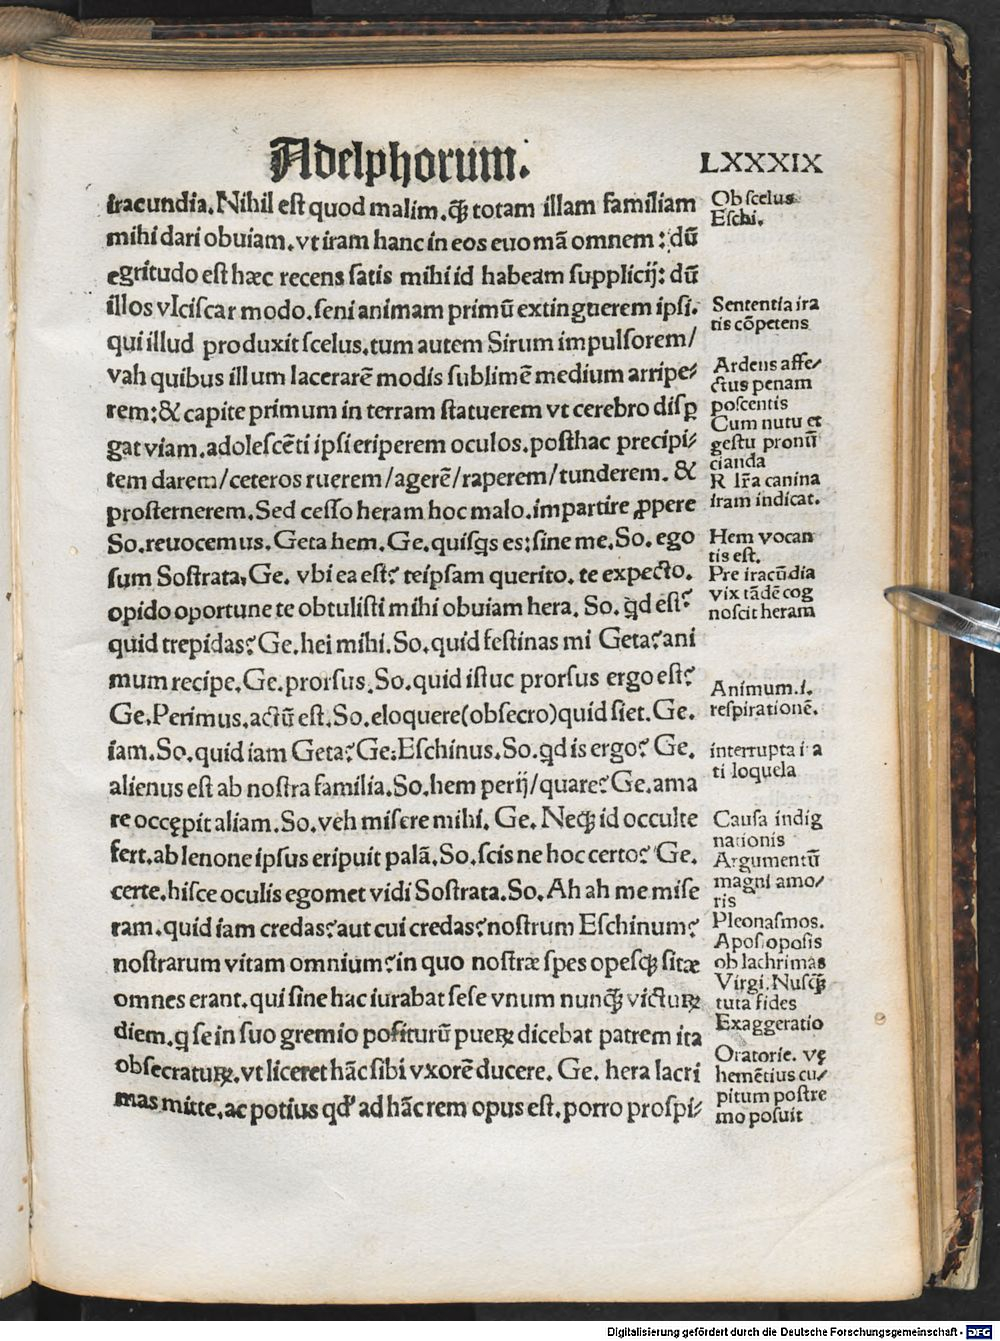 Adelphorum.
LXXXIX
iracundia. Nihil est quod malim. ꝙ̃ totam illam familiam
mihi dari obuiam. vt iram hanc in eos euomã omnem: dũ
egritudo est hæc recens satis mihi id habeam supplicij: dũ
illos vlciscar modo. seni animam primũ extinguerem ipsi.
qui illud produxit scelus. tum autem Sirum impulsorem/
vah quibus illum lacerarẽ modis sublimẽ medium arripe⸗
rem: & capite primum in terram statuerem vt cerebro disꝑ
gat viam. adolescẽti ipsi eriperem oculos. posthac precipi⸗
tem darem/ceteros ruerem/agerẽ/raperem/tunderem. &
prosternerem. Sed cesso heram hoc malo. impartire ꝓpere
So. reuocemus. Geta hem. Ge. quisq̃s es: sine me. So. ego
sum Sostrata, Ge. vbi ea est? teipsam querito. te expecto.
opido oportune te obtulisti mihi obuiam hera. So. q̃d est?
quid trepidas? Ge. hei mihi. So. quid festinas mi Geta? ani
mum recipe. Ge. prorsus. So. quid istuc prorsus ergo est?
Ge. Perimus. actũ est. So. eloquere (obsecro) quid siet. Ge.
iam. So. quid iam Geta? Ge: Eschinus. So. q̃d is ergo? Ge.
alienus est ab nostra familia. So. hem perij/quare? Ge. ama
re occępit aliam. So. veh misere mihi. Ge. Neqꝫ id occulte
fert. ab lenone ipsus eripuit palã. So. scis ne hoc certo? Ge.
certe. hisce oculis egomet vidi Sostrata. So. Ah ah me mise
ram. quid iam credas? aut cui credas? nostrum Eschinum?
nostrarum vitam omnium? in quo nostræ spes opesqꝫ sitæ
omnes erant. qui sine hac iurabat sese vnum nunꝙ̃ victuꝝ
diem. q se in suo gremio positurũ pueꝝ dicebat patrem ita
obsecratuꝝ. vt liceret hãc sibi vxorẽ ducere. Ge. hera lacri
mas mitte. ac potius qđ ad hãc rem opus est. porro prospi⸗
Ob scelus
Eschi.
Sententia ira
tis cõpetens
Ardens affe⸗
ctus penam
poscentis
Cum nutu et
gestu pronũ
cianda
R lr̃a canina
iram indicat.
Hem vocan
tis est.
Pre iracũdia
vix tãdẽ cog
noscit heram
Animum .i.
respirationẽ.
interrupta i a
ti loquela
Causa indig
nationis
Argumentũ
magni amo⸗
ris
Pleonasmos.
Aposioposis
ob lachrimas
Virgi. Nusꝙ̃
tuta fides
Exaggeratio
Oratorie. vę
hemẽtius cu⸗
pitum postre
mo posuit
Digitalisierung gefördert durch die Deutsche Forschungsgemeinschaft - DFG